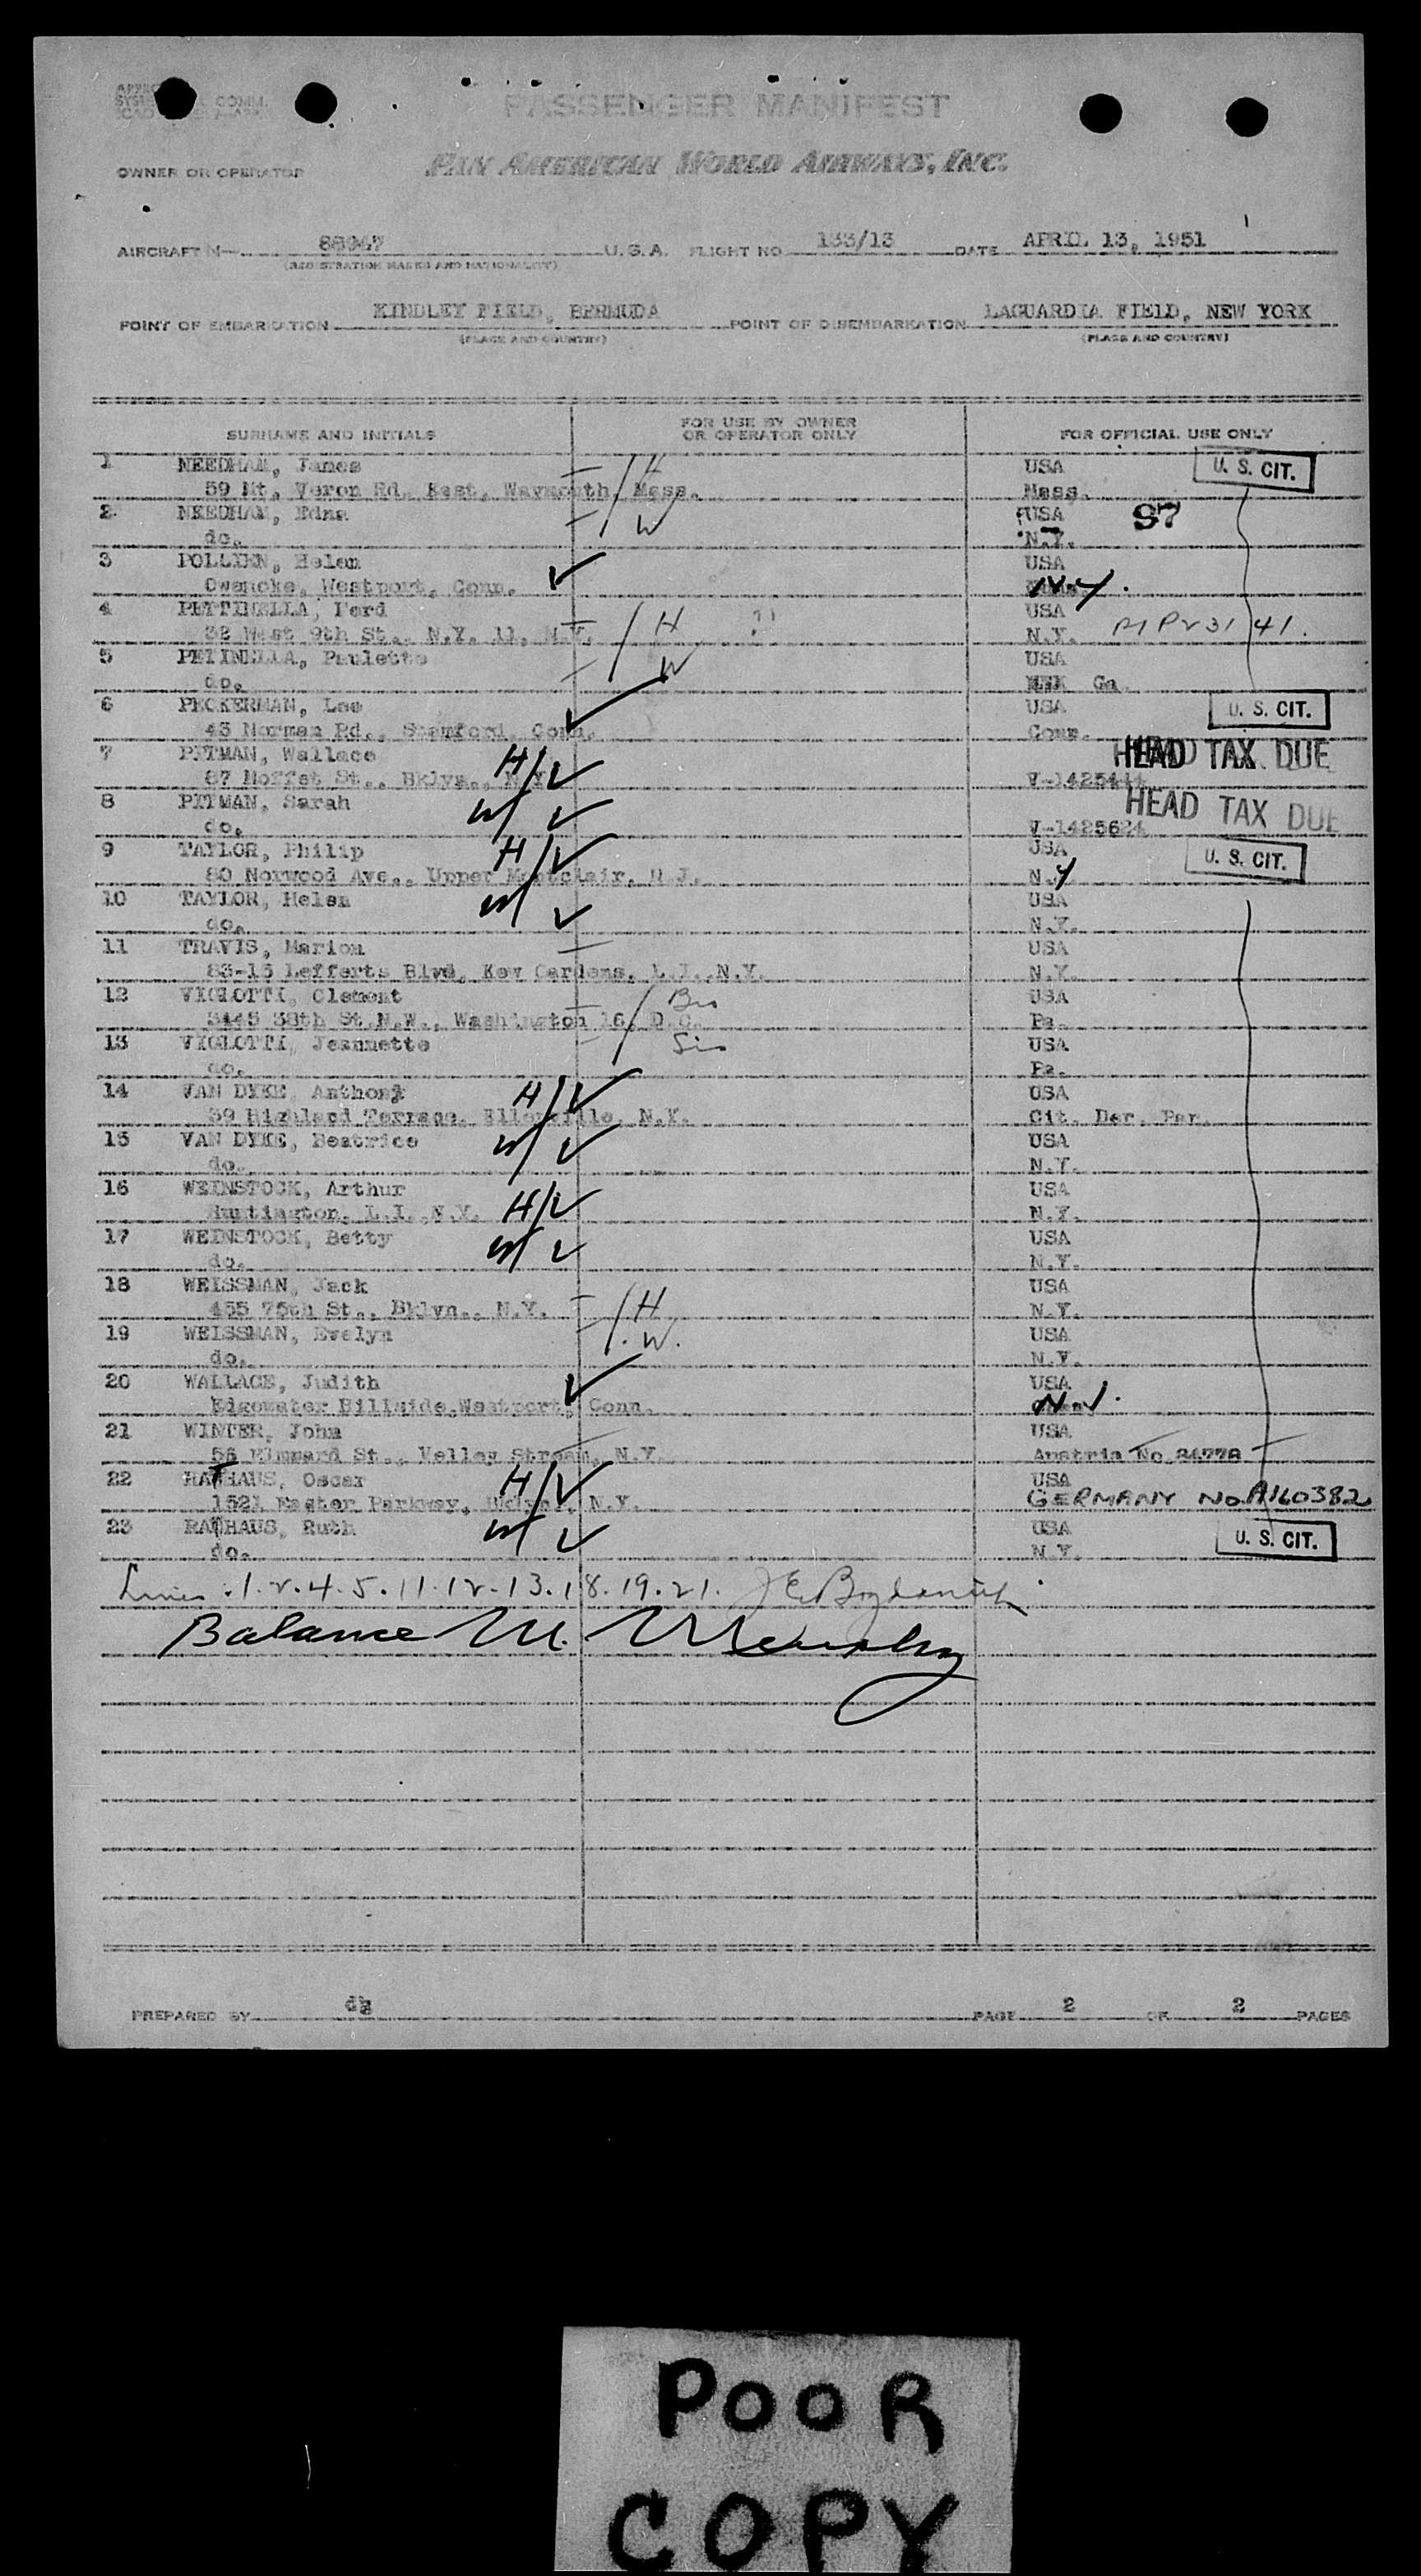 PASSENGER MANIFEST
OWNER OR OPERATOR PAN AMERICAN WORLD AIRWAYS, INC.
AIRCRAFT N— 88947 U.S.A. FLIGHT NO 133/13 DATE APRIL 13, 1951
(REGISTRATION MARKS AND NATIONALITY)
POINT OF EMBARKATION KINDLEY FIELD, BERMUDA POINT OF DISEMBARKATION LAGUARDIA FIELD, NEW YORK
(PLACE AND COUNTRY) (PLACE AND COUNTRY)
SURNAME AND INITIALS FOR USE BY OWNER OR OPERATOR ONLY FOR OFFICIAL USE ONLY
1 NEEDHAM, James H USA U. S. CIT.
59 Mt. Veron Rd. East, Waymouth, Mass. Mass.
2 NEEDHAM, Edna W USA 97
do. N.Y.
3 Helen ✓ USA
Owenoke, Westport, Conn. N.Y.
4 PETTINELLA, Ferd H USA
32 West 9th St., N.Y. 11, N.Y. N.Y.
5 PETINELLA, Paulette W USA
do. Ga.
6 PECKERMAN, Lee ✓ USA U. S. CIT.
43 Norman Rd., Stamford, Conn. Conn.
7 PITMAN, Wallace H/✓ HEAD TAX DUE
87 Moffet St., Bklyn., N.Y.
8 PITMAN, Sarah W/✓ HEAD TAX DUE
do. V-1425624
9 TAYLOR, Philip H/✓ USA U. S. CIT.
80 Norwood Ave., Upper Montclair, N.J. N.Y
10 TAYLOR, Helen W/✓ USA
do. N.Y.
11 TRAVIS, Marion USA
83-15 Lefferts Blvd, Kew Gardens, L.I.,N.Y. N.Y.
12 VIGLOTTI, Clement Bro USA
3445 38th St.N.W., Washington 16, D.C. Pa.
13 VIGLOTTI, Jeannette Sis USA
do. Pa.
14 VAN DYKE, Anthony H/✓ USA
59 Highland Terrace, Ellenville, N.Y. Cit. Der. Par.
15 VAN DYKE, Beatrice W/✓ USA
do. N.Y.
16 WEINSTOCK, Arthur H/✓ USA
Huntington, L.I.,N.Y. N.Y.
17 WEINSTOCK, Betty W/✓ USA
do. N.Y.
18 WEISSMAN, Jack H USA
455 75th St., Bklyn., N.Y. N.Y.
19 WEISSMAN, Evelyn W. USA
do. N.Y.
20 WALLACE, Judith ✓ USA
Edgewater Hillside,Westport, Conn. N.J.
21 WINTER, John USA
St., Valley Stream, N.Y. Austria No.
22 RATHAUS, Oscar H/✓ USA
1521 Easter Parkway, Bklyn., N.Y. GERMANY No. A160382
23 RATHAUS, Ruth W/✓ USA U. S. CIT.
do. N.Y.
Lines 1.2.4.5.11.12.13.18.19.21.
Balance M.
PREPARED BY PAGE 2 OF 2 PAGES
POOR
COPY